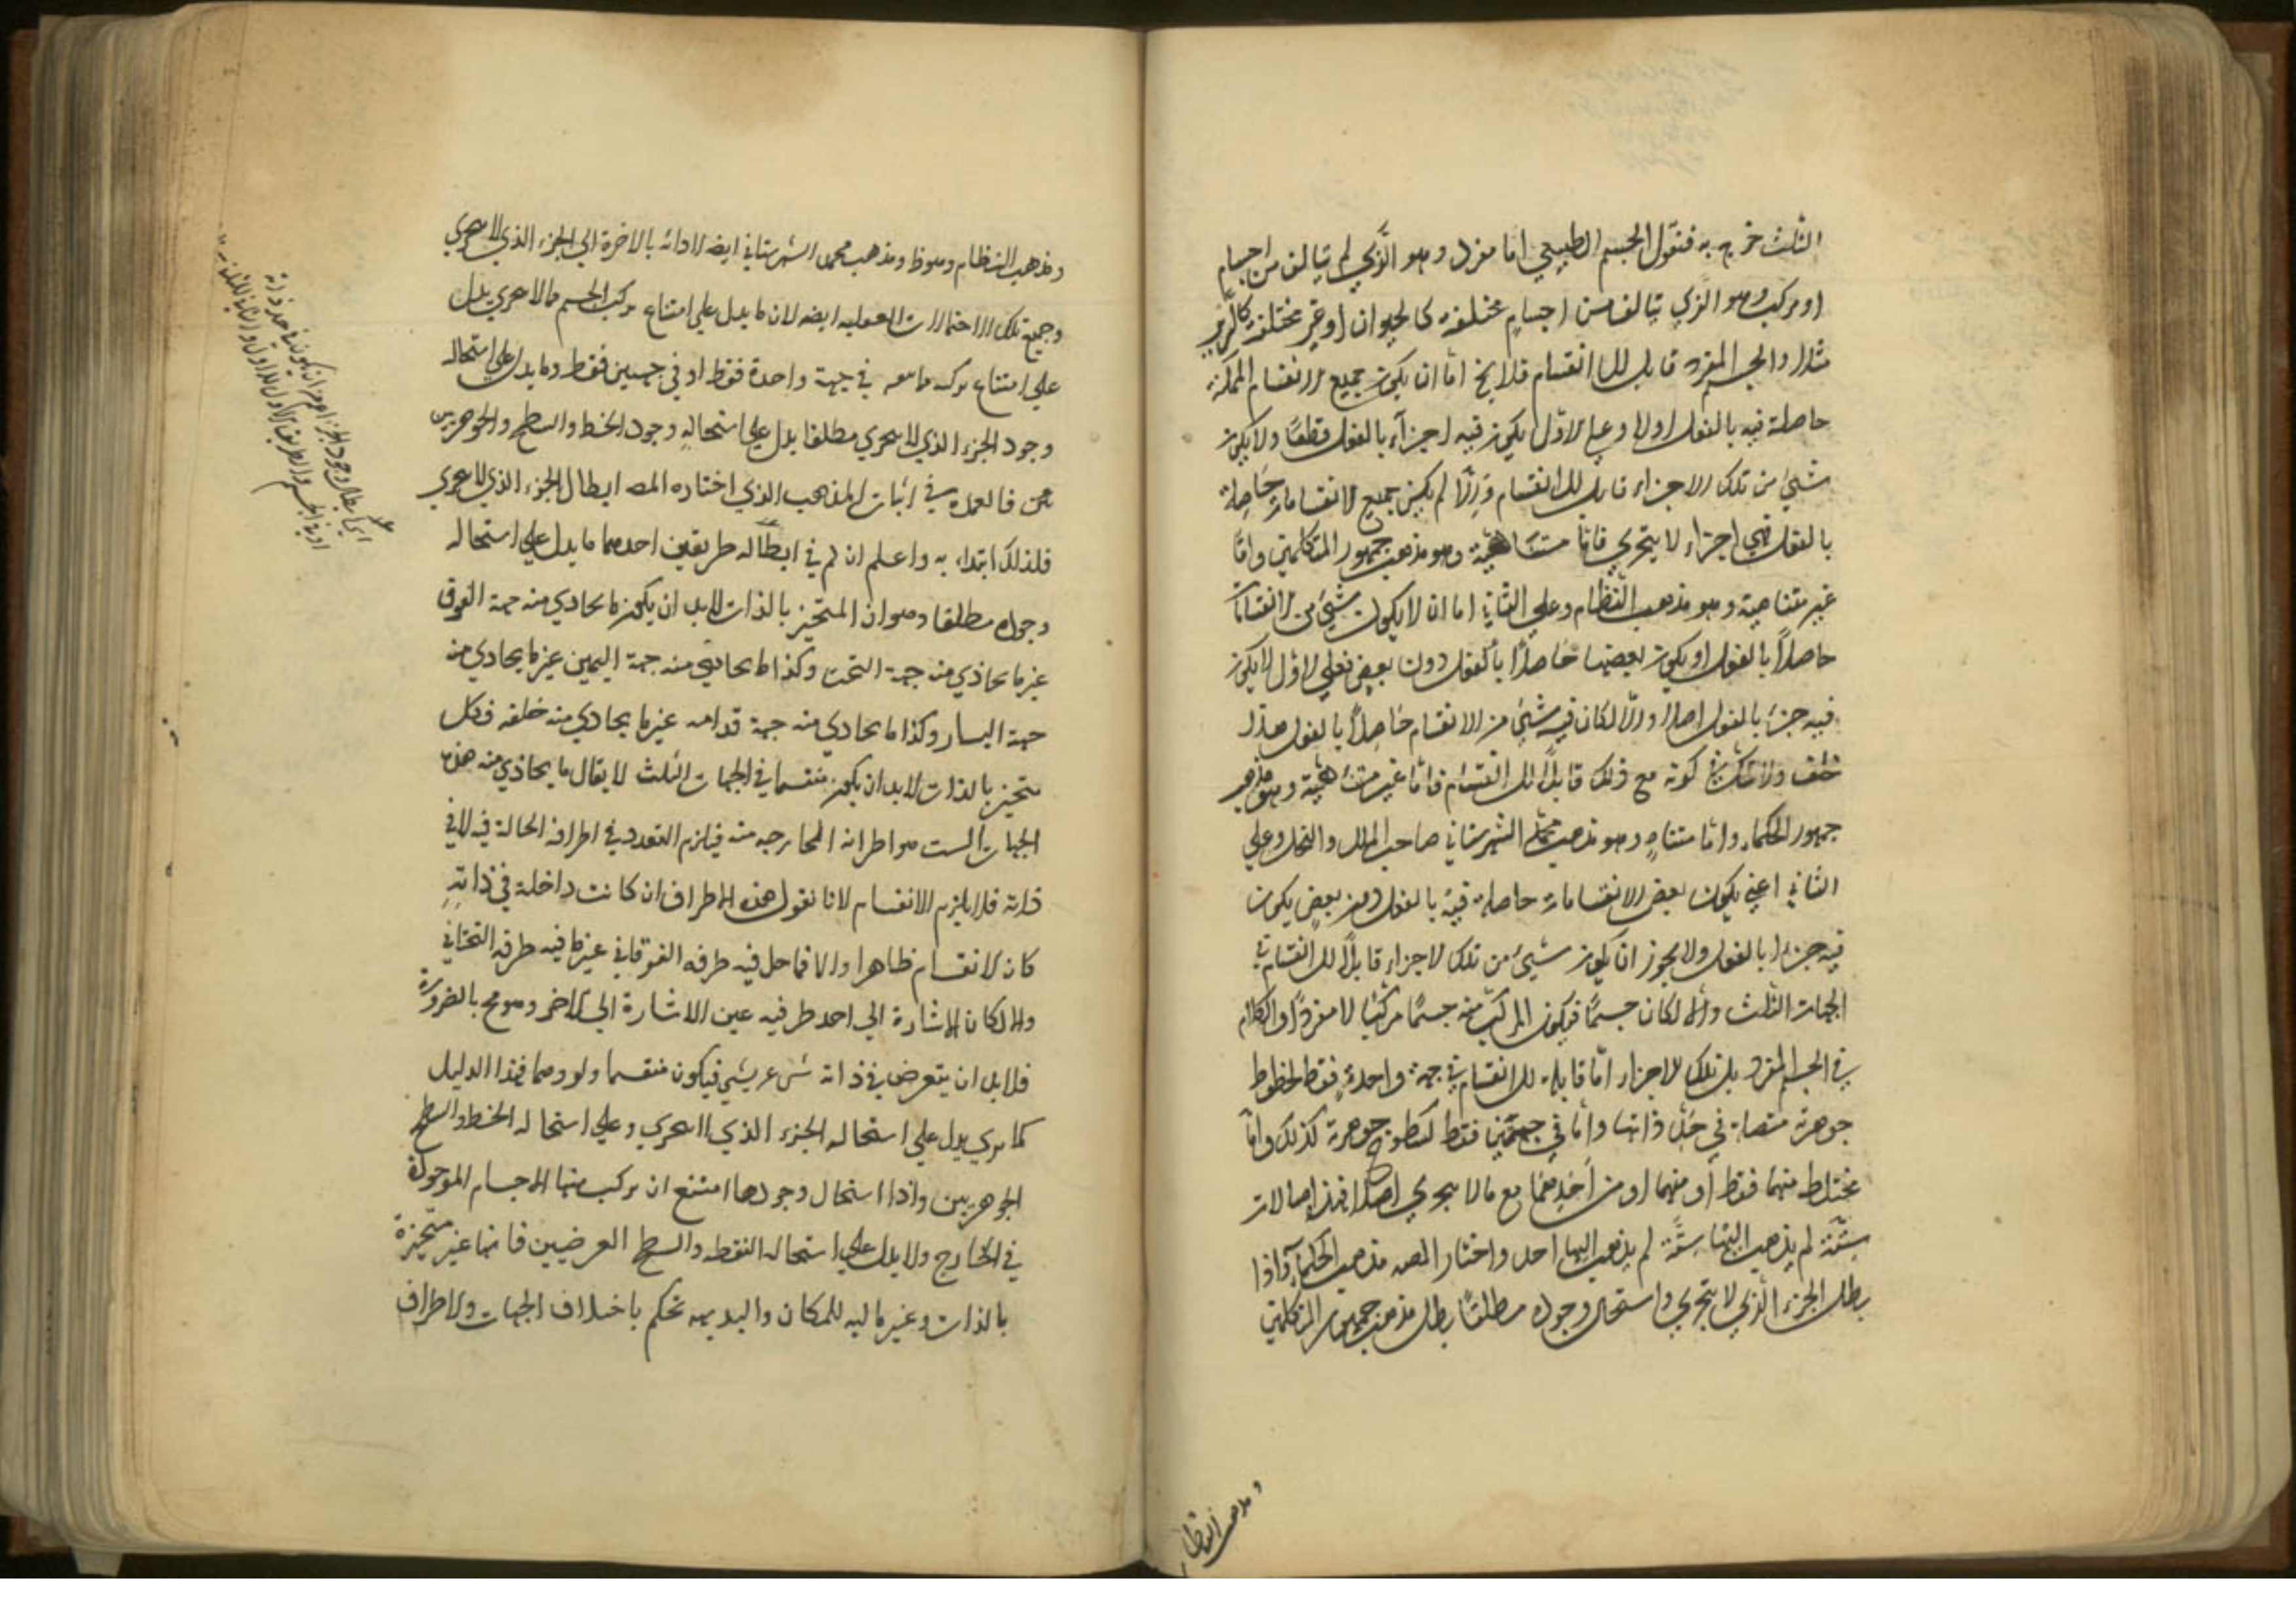 الثلث خرج به فنقول الجسم الطبيعي اما مفرد وهو الذي لم يتالف من اجسام
او مركب وهو الذي يتالف من اجسام مختلفة كالحيوان او غير مختلفة كالسرير
مثلا والجسم المفرد قابل للانقسام فلا يخ اما ان يكون جميع الانقسام الممكنة
حاصلة فيه بالفعل اولا وعلي الاول يكون فيه اجزاء بالفعل قطعًا ولا يكون
شيئ من تلك الاجزاء قابلا للانقسام والا لم يكن جميع الانقسامات حاصلة
بالفعل فهي اجزاء لا يتجزي فاما متناهية وهو مذهب جمهور المتكلمين واما
غير متناهية وهو مذهب النظام وعلي الثاني اما ان لا يكون شيئ من الانقسامات
حاصلاً بالفعل او يكون بعضها حاصلاً بالفعل دون بعض فعلي الاول لا يكون
فيه جزء بالفعل اصلا والا لكان فيه شيئ من الانقسام حاصلاً بالفعل هذا
خلف ولا شك في كونه مع ذلك قابلاً للانقسام فاما غير متناهية وهو مذهب
جمهور الحكماء واما متناهٍ وهو مذهب محمد الشهرستاني صاحب الملل والنحل وعلي
الثاني اعني يكون بعض الانقسامات حاصلة فيه بالفعل دون بعضٍ يكون
فيه جزء بالفعل ولا يجوز ان يكون شيئ من تلك الاجزاء قابلاً للانقسام في
الجهات الثلث والا لكان جسمًا فيكون المركب منه جسمًا مركبًا لا مفردًا والكلام
في الجسم المفرد بل تلك الاجزاء اما قابلة للانقسام في جهة واحدةٍ فقط كخطوط
جوهرية متصلة في حد ذاتها واما في جهتين فقط كسطوح جوهرية كذلك واما
مختلط منهما فقط او منهما او من احدهما مع ما لا يتجزي اصلا فهذه احتمالات
ستة لم يذهب اليها ستة لم يذهب اليها احد واختار المص مذهب الحكماء واذا
بطل الجزء الذي لا يتجزي واستحال وجوده مطلقًا بطل مذهب جمهور المتكلمين
ومذهب النظام
ومذهب النظام وهو ظ ومذهب محمد الشهرستاني ايضا لادائه بالاخرة الي الجزء الذي لا يتجزي
وجميع تلك الاحتمالات العقلية ايضه لان ما يدل علي امتناع تركب الجسم مما لا يتجزي يدل
علي امتناع تركبه مما ينقسم في جهة واحدة فقط او في جهتين فقط وما يدل علي استحالة
وجود الجزء الذي لا يتجزي مطلقا يدل علي استحالة وجود الخط والسطح والجوهريين
فالعمدة في اثبات المذهب الذي اختاره المص ابطال الجزء الذي لا يتجزي
فلذلك ابتداء به واعلم ان لهم في ابطاله طريقين احدهما ما يدل علي استحالة
وجوده مطلقا وهو ان المتحيز بالذات لابد ان يكون ما يحاذي منه جهة الفوق
غير ما يحاذي منه جهة التحت وكذا ما يحاذي منه جهة اليمين غير ما يحاذي منه
جهة اليسار وكذا ما يحاذي منه جهة قدامه غير ما يحاذي منه خلفه فكل
متحيز بالذات لابد ان يكون منقسما في الجهات الثلث لا يقال ما يحاذي منه هذه
الجهات الست هو اطرافه الخارجة منه فيلزم التعدد في اطرافه الحالة فيه لا في
ذاته فلا يلزم الانقسام لانا نقول هذه الاطراف ان كانت داخلة في ذاتهِ
كان الانقسام ظاهرا والا فما حل فيه طرفه الفوقاني غير ما فيه طرفه التحتاني
والا لكان الاشارة الي احد طرفيه عين الاشارة الي الاخر وهو مح بالضرورة
فلابد ان يتعرض في ذاته شئ غير شيئ فيكون منقسما ولو وهما فهذا الدليل
كما تري يدل علي استحالة الجزء الذي لا يتجزي وعلي استحالة الخط والسطح
الجوهريين واذا استحال وجودها امتنع ان تركب منها الاجسام الموجودة
في الخارج ولا يدل علي استحالة النقطة والسطح العرضيين فانها غير متحيزة
بالذات وغير مالية للمكان والبديهة تحكم باختلاف الجهات والاطراف